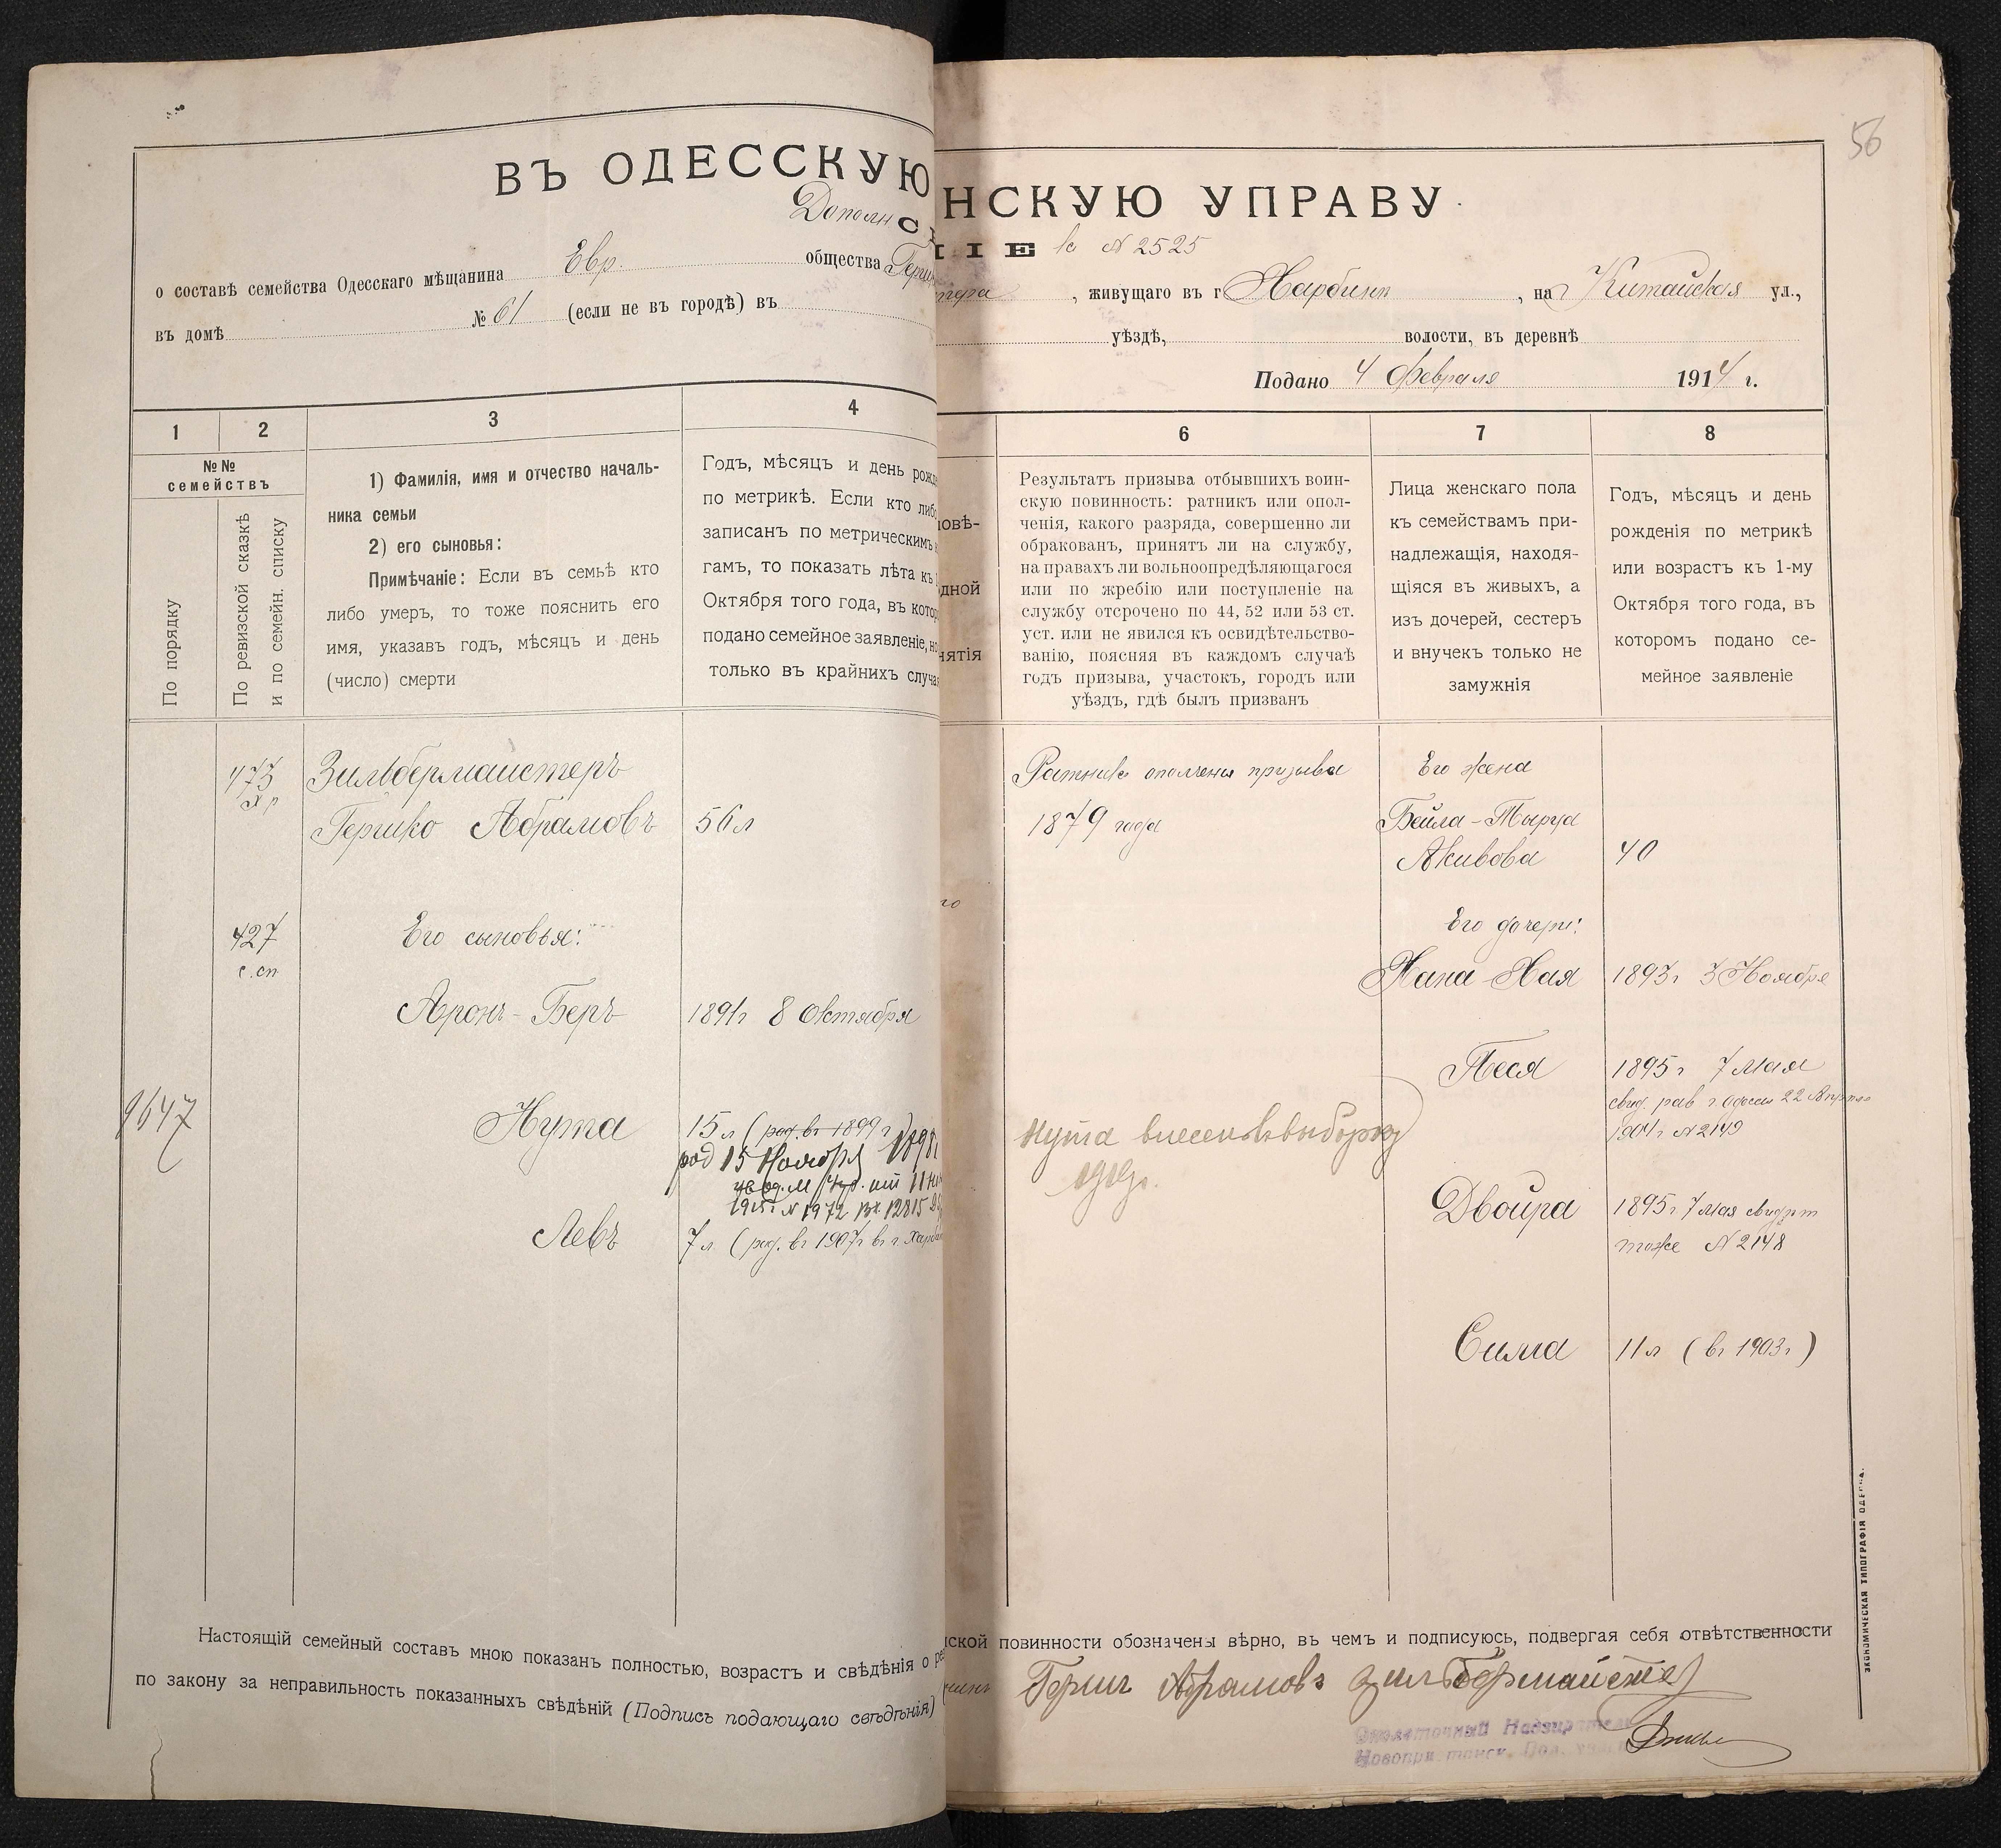 56
ВЪ ОДЕССКУЮ
НСКУЮ УПРАВУ
Дополн
С
ІІЕ к № 2525
о составѣ семейства Одесскаго мѣщанина Евр. общества Герш
, живущаго въ г Харбинѣ , на Китайская ул.,
въ домѣ № 61 (если не въ городѣ) въ
уѣздѣ, волости, въ деревнѣ
Подано 4 Февраля 1914 г.
1
2
3
4
6
7
8
№№
семействъ
По порядку
По ревизской сказкѣ
и по семейн. списку
1) Фамилія, имя и отчество началь-
ника семьи
2) его сыновья:
Примѣчаніе: Если въ семьѣ кто
либо умеръ, то тоже пояснить его
имя, указавъ годъ, мѣсяцъ и день
(число) смерти
Годъ, мѣсяцъ и день рожд
по метрикѣ. Если кто либо
записанъ по метрическимъ
гамъ, то показать лѣта къ
Октября того года, въ кото
подано семейное заявленіе, но
только въ крайнихъ случа
овѣ-
дной
нятія
Результатъ призыва отбывшихъ воин-
скую повинность: ратникъ или опол-
ченія, какого разряда, совершенно ли
обракованъ, принятъ ли на службу,
на правахъ ли вольноопредѣляющагося
или по жребію или поступленіе на
службу отсрочено по 44, 52 или 53 ст.
уст. или не явился къ освидѣтельство-
ванію, поясняя въ каждомъ случаѣ
годъ призыва, участокъ, городъ или
уѣздъ, гдѣ былъ призванъ
Лица женскаго пола
къ семействамъ при-
надлежащія, находя-
щіяся въ живыхъ, а
изъ дочерей, сестеръ
и внучекъ только не
замужнія
Годъ, мѣсяцъ и день
рожденія по метрикѣ
или возрастъ къ 1-му
Октября того года, въ
которомъ подано се-
мейное заявленіе
473
Зильбермайстеръ
Гершко Абрамовъ 56 л
Ратникъ ополченія призыва
1879 года
Его жена
Бейла-Тырца
Акивова 40
427
с. сп
Его сыновья:
Его дочери:
Хана-Хая 1893 г 3 Ноября
Аронъ-Беръ 1891 г 8 Октября
Песя 1895 г 7 Мая
свид. рав г. Одессы 22 Апреля
1904 г № 2149
9647
Нута 15 л (род. въ 1899 г)
род 15 Ноября 1898
1915 г № 1972 12815
Нута внесенъ въ выборку
Двойра 1895 г 7 Мая свид рт
тоже № 2148
Левъ 7 л (род. въ 1907 г въ г. Харбин
Сима 11 л (въ 1903 г)
Настоящій семейный составъ мною показанъ полностью, возрастъ и свѣдѣнія о
ской повинности обозначены вѣрно, въ чемъ и подписуюсь, подвергая себя отвѣтственности
по закону за неправильность показанныхъ свѣдѣній (Подпись подающаго свѣдѣнія)
Герш Абрамовъ Зильбермайстер
Околоточный Надзиратель
ЭКОНОМИЧЕСКАЯ ТИПОГРАФІЯ ОДЕССА.